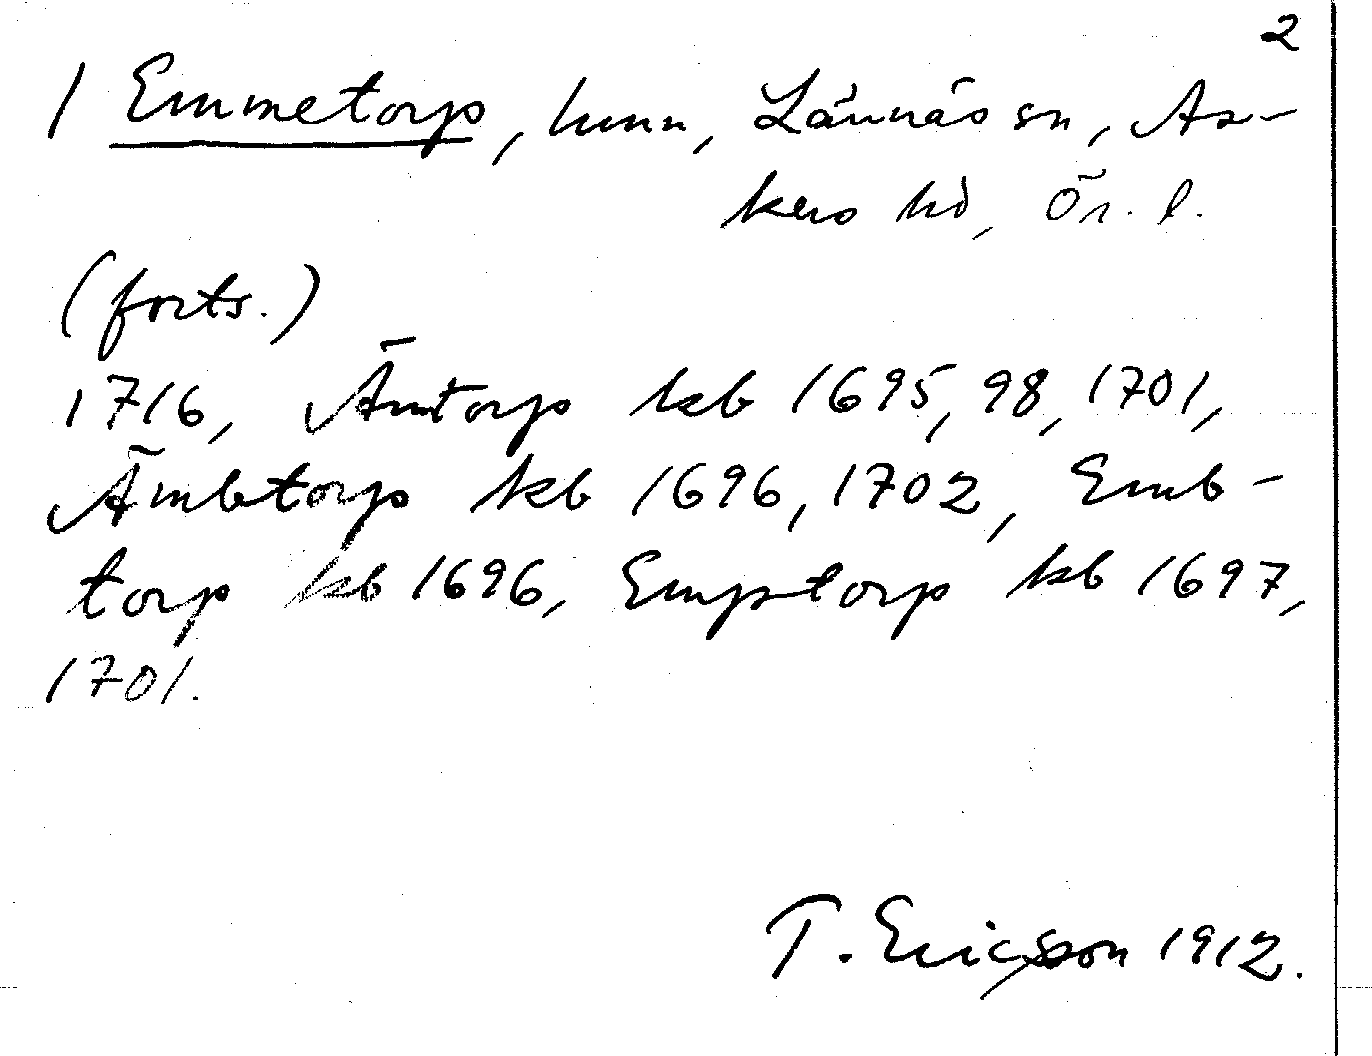 2
/ Emmetorp, hmn, Lännäs sn, As-
kers hd, Ör. l.
(forts.)
1716, Ämtorp kb 1695, 98, 1701,
Ämbtorp kb 1696, 1702, Emb-
torp kb 1696, Emptorp kb 1697,
1701.
T. Ericsson 1912.